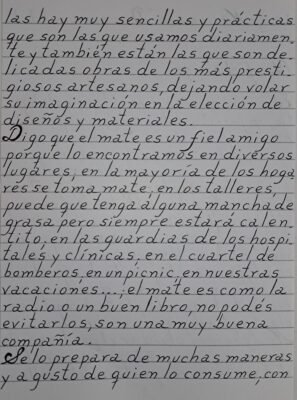 las hay muy sencillas y prácticas
que son las que usamos diariamen-
te y también están las que son de-
licadas obras de los más presti-
giosos artesanos, dejando volar
su imaginación en la elección de
diseños y materiales.
Digo que el mate es un fiel amigo
porque lo encontramos en diversos
lugares, en la mayoría de los hoga
res se toma mate, en los talleres,
puede que tenga alguna mancha de
grasa pero siempre estará calen-
tito, en las guardias de los hospi-
tales y clínicas, en el cuartel de
bomberos, en un picnic, en nuestras
vacaciones...; el mate es como la
radio o un buen libro, no podés
evitarlos, son una muy buena
compañía.
Se lo prepara de muchas maneras
y a gusto de quien lo consume, con